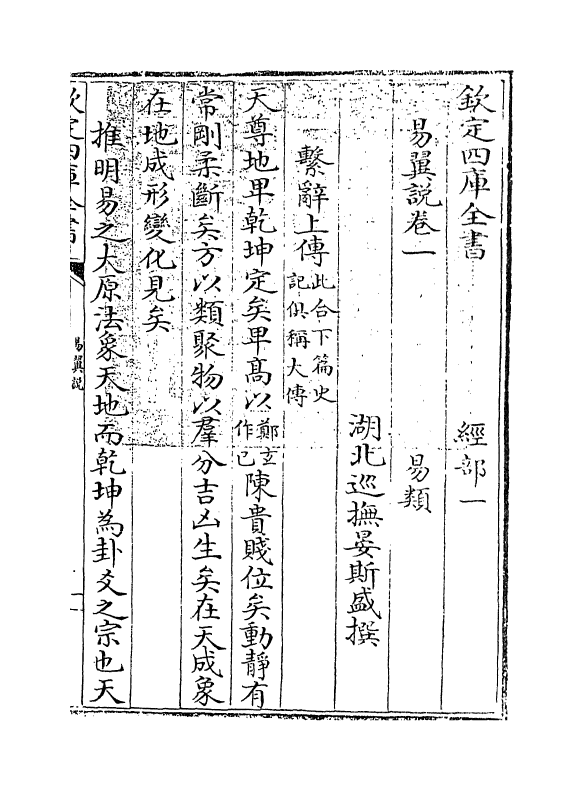 欽定四庫全書　　經部一
易翼說卷一　　易類
湖北巡撫晏斯盛撰
繫辭上傳此合下篇史記俱稱大傳
天尊地卑乾坤定矣卑高以鄭玄作已陳貴賤位矣動靜有
常剛柔斷矣方以類聚物以羣分吉凶生矣在天成象
在地成形變化見矣
推明易之大原法象天地而乾坤為卦爻之宗也天
欽定四庫全書
易翼說
一